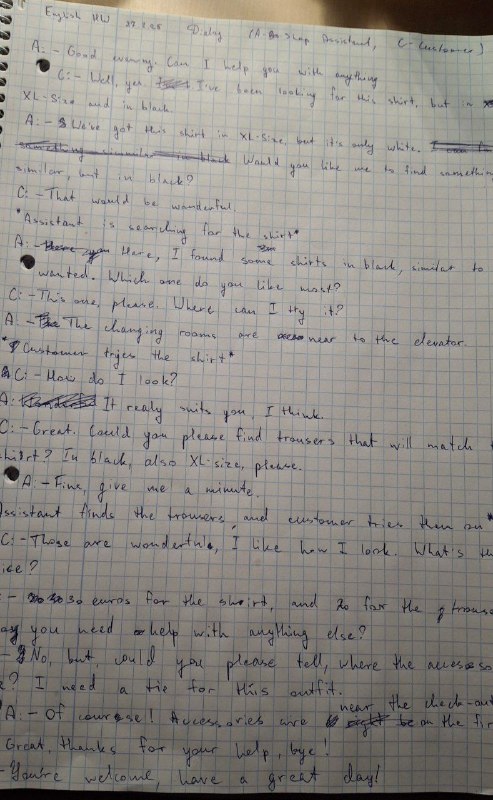 English HW 27.2.25 Dialog (A-Shop Assistant, C-Customer)
A: - Good evening. Can I help you with anything
C: - Well, yes. I've been looking for this shirt, but in
XL-Size and in black.
A: - We've got this shirt in XL-Size, but it's only white.
Would you like me to find somethin
similar, but in black?
C: - That would be wonderful.
*Assistant is searching for the shirt*
A: - Here, I found some shirts in black, similar to
wanted. Which one do you like most?
C: - This one, please. Where can I try it?
A: - The changing rooms are near to the elevator.
*Customer tries the shirt*
C: - How do I look?
A: It realy suits you, I think.
C: - Great. Could you please find trousers that will match
shirt? In black, also XL-size, please.
A: - Fine, give me a minute.
Assistant finds the trousers, and customer tries them on*
C: - Those are wonderful, I like how I look. What's th
ice?
- 30 euros for the shirt, and 20 for the trouse
you need help with anything else?
- No, but could you please tell, where the accesso
? I need a tie for this outfit.
A: - Of course! Accessories are near the check-out
on the fir
Great, thanks for your help, bye!
- You're welcome, have a great day!